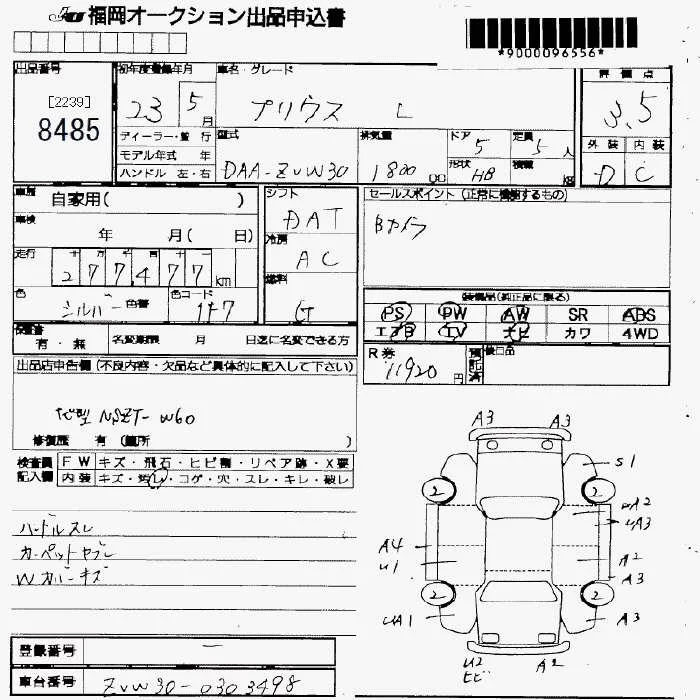 福岡オークション出品申込書
*9000096556*
出品番号
[2239]
8485
初年度登録年月
23 5月
車名・グレード
プリウス L
評価点
3.5
ディーラー・並行
モデル年式 年
ハンドル 左・右
型式
DAA-ZVW30
排気量
1800 cc
ドア
5
形状
HB
定員
5人
積載
kg
外装 内装
D C
車歴
自家用( )
車検
年 月( 日)
走行
277,477km
色
シルバー 色替
色コード
1F7
シフト
DAT
冷房
AC
燃料
G
セールスポイント(正常に機能するもの)
Bカメラ
装備品(純正品に限る)
PS PW AW SR ABS
エアB TV ナビ カワ 4WD
保証書
有・無
名変期限 月 日迄に名変できる方
R券
11920円
預託済
後日品
出品店申告欄(不良内容・欠品など具体的に記入して下さい)
ナビ型 NSZT-W60
修復歴 有(箇所 )
検査員記入欄
FW キズ・飛石・ヒビ割・リペア跡・X要
内装 キズ・汚レ・コゲ・穴・スレ・キレ・破レ
ハンドルスレ
カーペットヤブレ
Wカバーキズ
A3 A3
S1
2 2
A2
UA3
A4
U1
A2
A3
2 2
UA1
A3
U2
ヒビ
A2
登録番号
車台番号
ZVW30-0303498